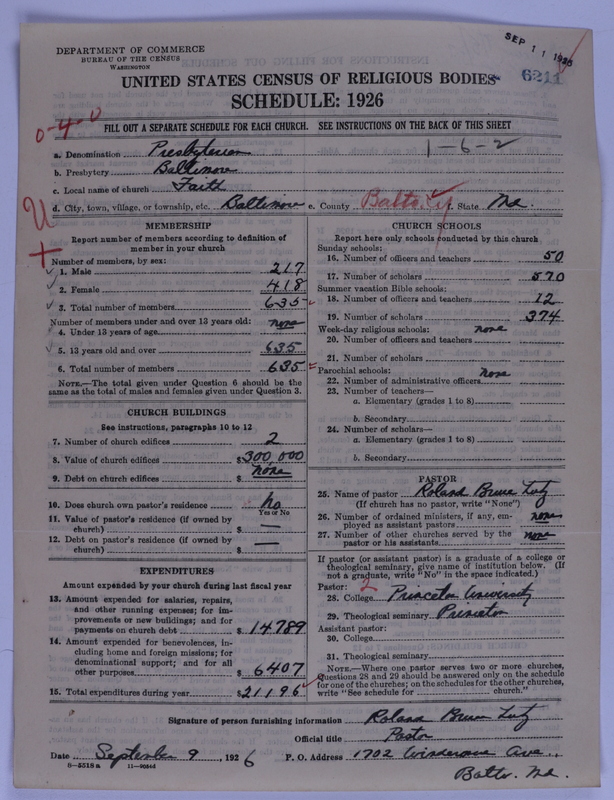 SEP 11 1926
DEPARTMENT OF COMMERCE
BUREAU OF THE CENSUS
WASHINGTON
6211
UNITED STATES CENSUS OF RELIGIOUS BODIES
SCHEDULE: 1926
0-4-0
FILL OUT A SEPARATE SCHEDULE FOR EACH CHURCH. SEE INSTRUCTIONS ON THE BACK OF THIS SHEET
1-6-2
a. Denomination Presbyterian
b. Presbytery Baltimore
c. Local name of church Faith
d. City, town, village, or township, etc. Baltimore e. County Balto. City f. State Md.
MEMBERSHIP
Report number of members according to definition of
member in your church
Number of members, by sex:
1. Male 217
2. Female 418
3. Total number of members 635
Number of members under and over 13 years old:
4. Under 13 years of age none
5. 13 years old and over 635
6. Total number of members 635
NOTE.—The total given under Question 6 should be
same as the total of males and females given under Question 3.
CHURCH BUILDINGS
See instructions, paragraphs 10 to 12
7. Number of church edifices 2
8. Value of church edifices $300,000
9. Debt on church edifices $ none
10. Does church own pastor's residence No
Yes or No
11. Value of pastor's residence (if owned by
church) $ —
12. Debt on pastor's residence (if owned by
church) $ —
EXPENDITURES
Amount expended by your church during last fiscal year
13. Amount expended for salaries, repairs,
and other running expenses; for im-
provements or new buildings; and for
payments on church debt $ 14789
14. Amount expended for benevolences, in-
cluding home and foreign missions; for
denominational support; and for all
other purposes $ 6407
15. Total expenditures during year $21196
CHURCH SCHOOLS
Report here only schools conducted by this church
Sunday schools:
16. Number of officers and teachers 50
17. Number of scholars 570
Summer vacation Bible schools:
18. Number of officers and teachers 12
19. Number of scholars 374
Week-day religious schools: none
20. Number of officers and teachers
21. Number of scholars
Parochial schools: none
22. Number of administrative officers
23. Number of teachers—
a. Elementary (grades 1 to 8)
b. Secondary
24. Number of scholars—
a. Elementary (grades 1 to 8)
b. Secondary
PASTOR
25. Name of pastor Roland Bruce Lutz
(If church has no pastor, write "None")
26. Number of ordained ministers, if any, em-
ployed as assistant pastors none
27. Number of other churches served by the
pastor or his assistants none
If pastor (or assistant pastor) is a graduate of a college or
theological seminary, give name of institution below. (If
not a graduate, write "No" in the space indicated.)
Pastor: 2
28. College Princeton University
29. Theological seminary Princeton
Assistant pastor:
30. College
31. Theological seminary
NOTE.—Where one pastor serves two or more churches,
Questions 28 and 29 should be answered only on the schedule
for one of the churches; on the schedules for the other churches,
write "See schedule for church."
Signature of person furnishing information Roland Bruce Lutz
Official title Pastor
Date September 9, 1926 P. O. Address 1702 Ave.,
Balto. Md.